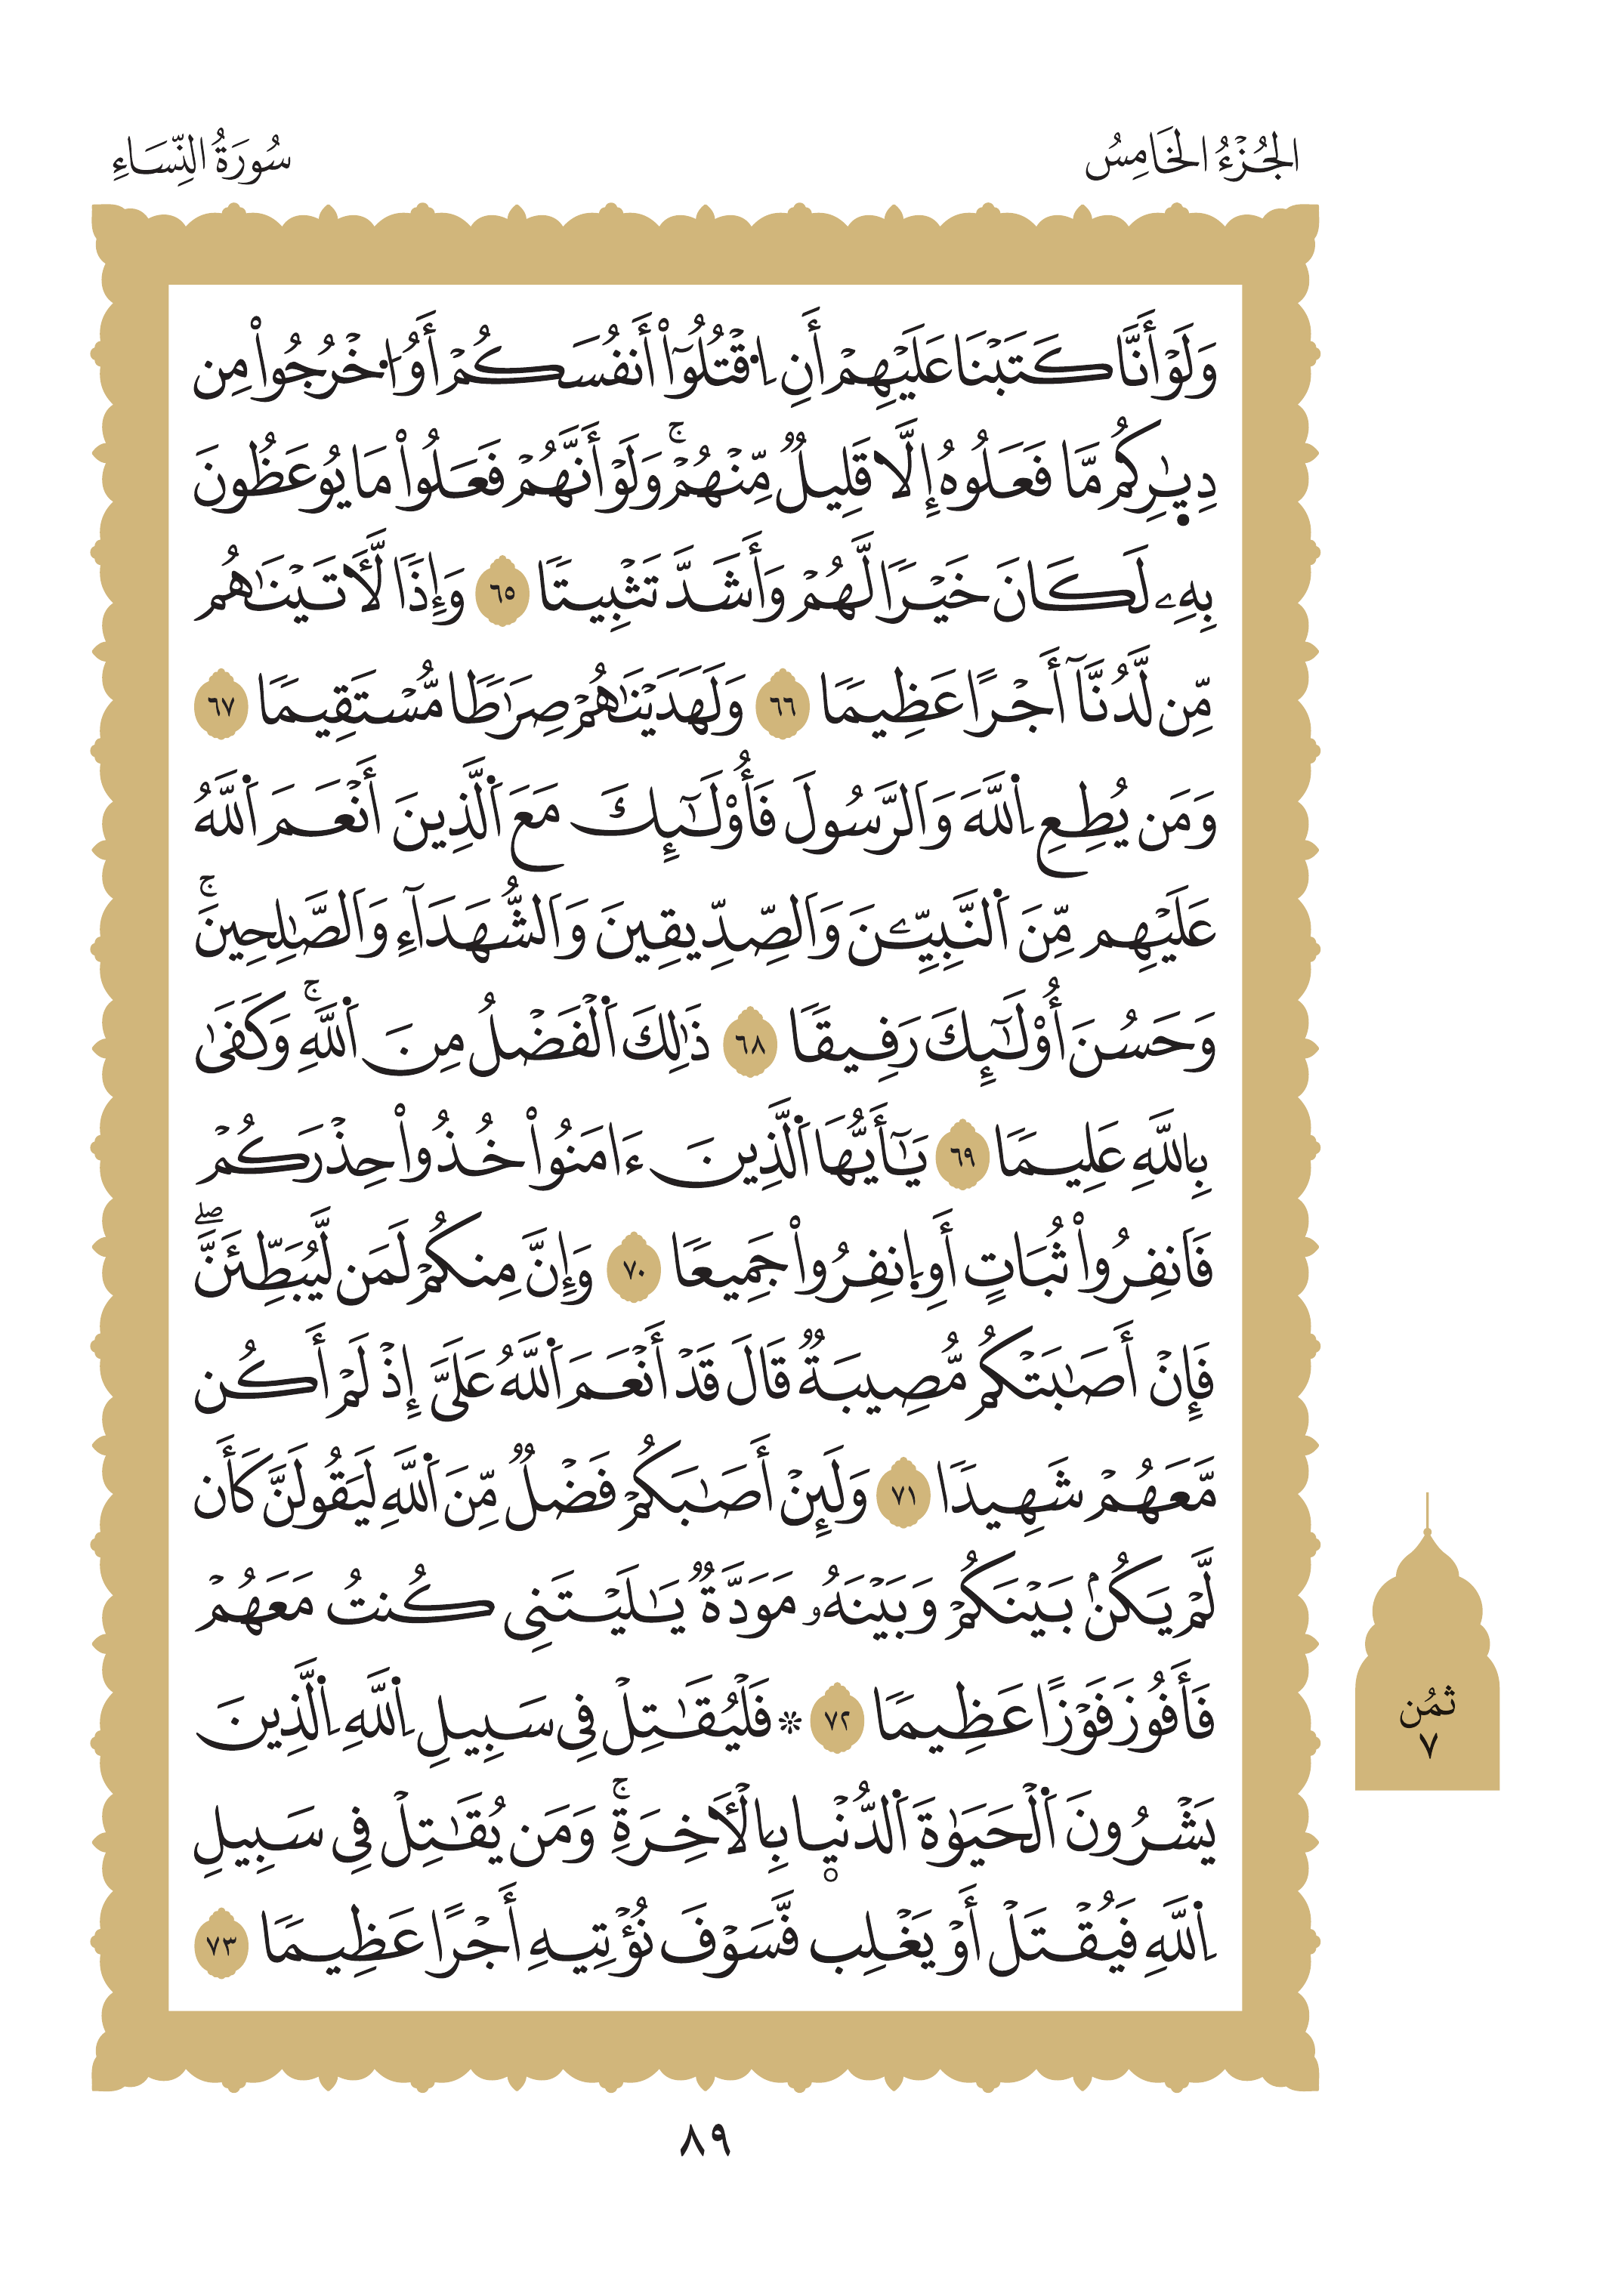 الجُزْءُ الخَامِسُ
سُورَةُ النِّسَاءِ
وَلَوۡ أَنَّا كَتَبۡنَا عَلَيۡهِمۡ أَنِ ٱقۡتُلُوٓاْ أَنفُسَكُمۡ أَوُ ٱخۡرُجُواْ مِن
دِيٰرِكُم مَّا فَعَلُوهُ إِلَّا قَلِيلٞ مِّنۡهُمۡۚ وَلَوۡ أَنَّهُمۡ فَعَلُواْ مَا يُوعَظُونَ
بِهِۦ لَكَانَ خَيۡرٗا لَّهُمۡ وَأَشَدَّ تَثۡبِيتٗا ٦٥ وَإِذٗا لَّأٓتَيۡنَٰهُم
مِّن لَّدُنَّآ أَجۡرًا عَظِيمٗا ٦٦ وَلَهَدَيۡنَٰهُمۡ صِرَٰطٗا مُّسۡتَقِيمٗا ٦٧
وَمَن يُطِعِ ٱللَّهَ وَٱلرَّسُولَ فَأُوْلَٰٓئِكَ مَعَ ٱلَّذِينَ أَنۡعَمَ ٱللَّهُ
عَلَيۡهِم مِّنَ ٱلنَّبِيِّـۧنَ وَٱلصِّدِّيقِينَ وَٱلشُّهَدَآءِ وَٱلصَّٰلِحِينَۚ
وَحَسُنَ أُوْلَٰٓئِكَ رَفِيقٗا ٦٨ ذَٰلِكَ ٱلۡفَضۡلُ مِنَ ٱللَّهِۚ وَكَفَىٰ
بِٱللَّهِ عَلِيمٗا ٦٩ يَٰٓأَيُّهَا ٱلَّذِينَ ءَامَنُواْ خُذُواْ حِذۡرَكُمۡ
فَٱنفِرُواْ ثُبَاتٍ أَوِ ٱنفِرُواْ جَمِيعٗا ٧٠ وَإِنَّ مِنكُمۡ لَمَن لَّيُبَطِّئَنَّۖ
فَإِنۡ أَصَٰبَتۡكُم مُّصِيبَةٞ قَالَ قَدۡ أَنۡعَمَ ٱللَّهُ عَلَيَّ إِذۡ لَمۡ أَكُن
مَّعَهُمۡ شَهِيدٗا ٧١ وَلَئِنۡ أَصَٰبَكُمۡ فَضۡلٞ مِّنَ ٱللَّهِ لَيَقُولَنَّ كَأَن
لَّمۡ يَكُنۢ بَيۡنَكُمۡ وَبَيۡنَهُۥ مَوَدَّةٞ يَٰلَيۡتَنِي كُنتُ مَعَهُمۡ
فَأَفُوزَ فَوۡزًا عَظِيمٗا ٧٢ ۞ فَلۡيُقَٰتِلۡ فِي سَبِيلِ ٱللَّهِ ٱلَّذِينَ
يَشۡرُونَ ٱلۡحَيَوٰةَ ٱلدُّنۡيَا بِٱلۡأٓخِرَةِۚ وَمَن يُقَٰتِلۡ فِي سَبِيلِ
ٱللَّهِ فَيُقۡتَلۡ أَوۡ يَغۡلِب فَّسَوۡفَ نُؤۡتِيهِ أَجۡرًا عَظِيمٗا ٧٣
ثُمُن
٧
٨٩